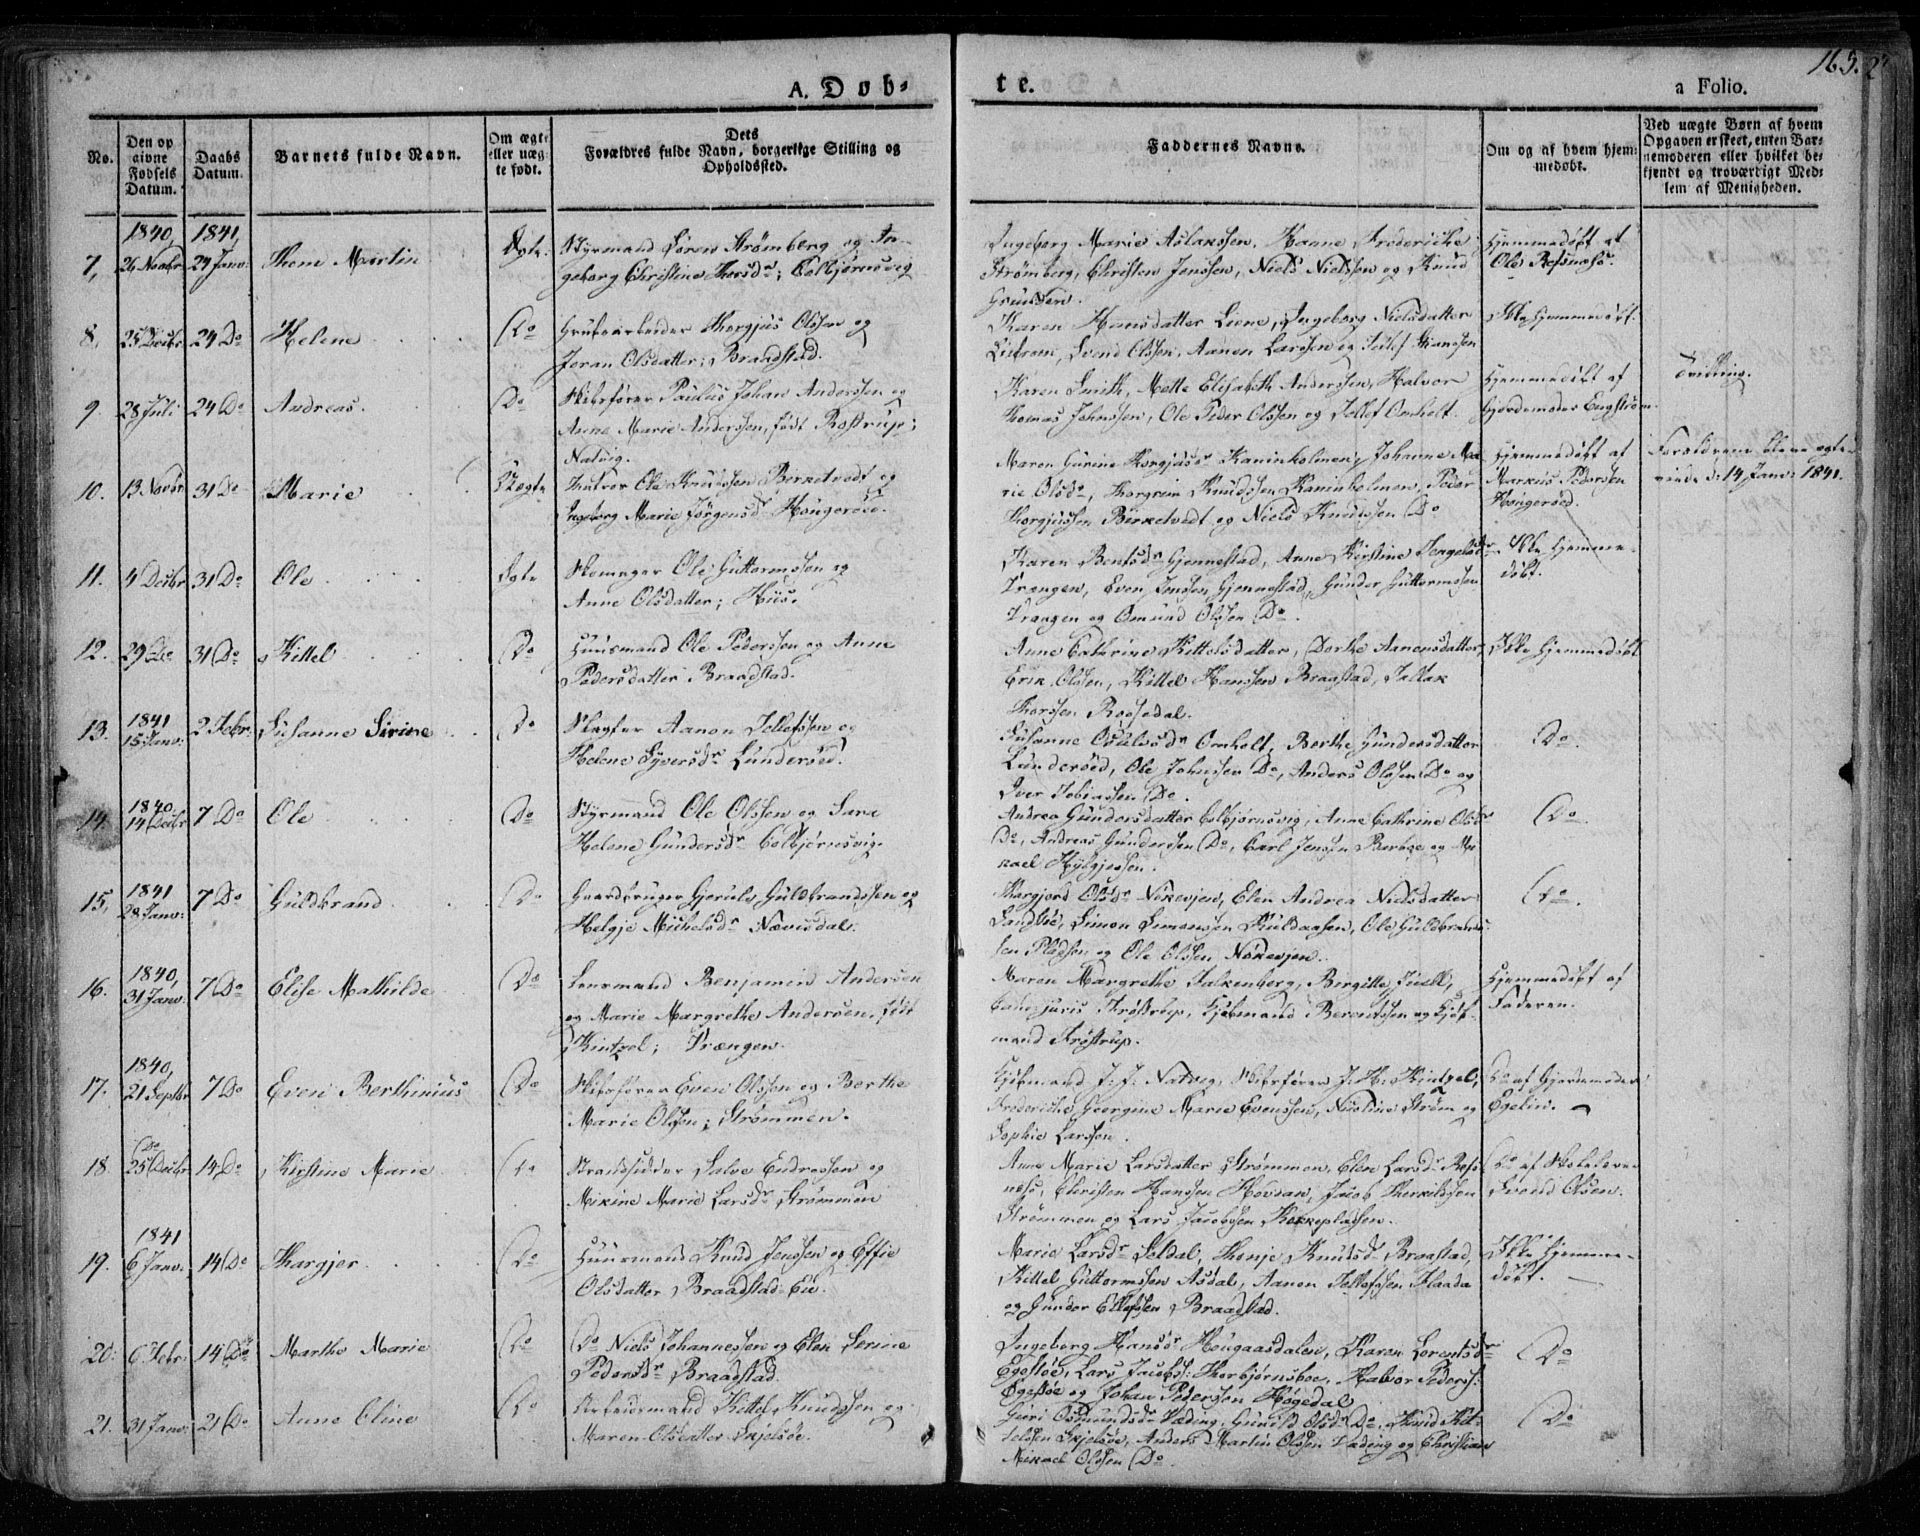 165.
A. Døb-
te.
a Folio.
No.
Den op
givne
Fødsels
Datum.
Daabs
Datum.
Barnets fulde Navn.
Om ægte
eller uæg-
te født.
Dets
Forældres fulde Navn, borgerlige Stilling og
Opholdssted.
Faddernes Navne.
Om og af hvem hjem-
medøbt.
Ved uægte Børn af hvem
Opgaven er skeet, enten Bar-
nemoderen eller hvilket be-
kjendt og troværdigt Med-
lem af Menigheden.
7, 1840, 26 Novbr 1841, 24 Janv: Thom Martin Ægte.
Styrmand Sören Strømberg og In-
geborg Christine Thorsdr; Colbjørnsvig
Ingeborg Marie Aslakssen, Hanne Frederikke
Strømberg, Christen Jenssen, Niels Nielssen og Knud
Hjemmedøbt af
Ole
8, 25 Decbr 24 Do Helene Do
Grubearbeider Thorgjus Olssen og
Joran Olsdatter; Braadstad.
Karen Hansdatter Liene, Ingeborg Nielsdatter
Svend Olssen, Aanon Larssen og
Ikke hjemmedøbt.
9. 28 Juli 24 Do Andreas. Do
Skibsfører Paulus Johan Anderssen og
Anne Marie Anderssen, født Rostrup;
Natvig.
Karen Smith, Mette Elisabeth Anderssen, Halvor
Thomas Johnssen, Ole Peder Olssen og Tellef Omholt.
Hjemmedøbt af
Gjordemoder Engstrøm.
Tvilling.
10. 13 Novbr 31 Do Marie Uægte
Ole Knudssen Berketvedt og
Ingeborg Marie Jörgensdr Hougeröed.
Maren Gurine Kaninholmen, Johanne Ma-
rie Olsdr, Thorgrim Knudssen Kaninholmen, Peder
Thorgjussen Birketvedt og Niels Knudssen Do
Hjemmedøbt af
Markus Pedersen
Hougeröed.
Forældrene bleve egte-
viede d: 14 Janv: 1841.
11. 4 Decbr 31 Do Ole Ægte
Skomager Ole Guttormssen og
Anne Olsdatter; Hiis.
Karen Bentsdr Gjennestad, Anne Kirstine
Trængen, Even Jenssen Gjennestad, Gunder Guttormssen
Trangen og Omund Olssen Do.
Ikke hjemme-
døbt.
12. 29 Do 31 Do Kittel Do
Huusmand Ole Pederssen og Anne
Pedersdatter Braadstad.
Anne Cathrine Kittelsdatter, Dorthe Aanensdatter,
Erik Olssen, Kittel Hanssen Braastad, Tallak
Thorssen Roesedal.
Ikke hjemmedøbt
13. 1841 15 Janv: 2 Febr. Susanne Sirine Do
Aanon Tellefssen og
Helene Syversdr Lunderöed.
Susanne Osulvsdr Omholt, Berthe Gundersdatter
Lunderöed, Ole Johnssen Do, Anders Olssen Do og
Iver Tobiassen Do.
Do.
14. 1840, 14 Decbr 7 Do Ole Do
Styrmand Ole Olssen og Sara
Helene Gundersdr Colbjørnsvig.
Andrea Gundersdatter Colbjørnsvig, Anne Cathrine Olsdr
Do, Andreas Gunderssen Do, Carl Jenssen og Mi-
kael
Do.
15, 1841 28 Janv: 7 Do Guldbrand Do
Gaardbruger Gjeruls Guldbrandssen og
Helgje Michelsdr Nævisdal.
Thorgjerd Olsdr Nökevjen, Elen Andrea Nielsdatter
Simon Simonssen Ole Guldbrands-
sen og Ole Olssen Nökevjen.
Do.
16. 1840, 31 Janv. 7 Do Elise Mathilde Do
Lensmand Benjamin Andersen
og Marie Margrethe Andersen, født
Kintzel; Trængen.
Maren Margrethe Falkenberg, Birgitte Juell,
Frøstrup, Kjøbmand Berentssen og Kjøb-
mand Frøstrup.
Hjemmedøbt af
Faderen.
17. 1840, 21 Septbr 7 Do Even Berthinius Do
Skibsfører Even Olssen og Berthe
Marie Olssen; Strømmen.
Kjøbmand J: J: Natvig, Skibsfører J: H: Kintzel,
Frederikke Georgine Marie Evenssen, Nicoline Strøm og
Sophie Larssen.
Do af Gjordemoder
Egelin.
18. Do 25 Decbr 14 Do Kirstine Marie Do
Strandsidder Salve Endressen og
Mikine Marie Larsdr Strømmen
Anne Marie Larsdatter Strømmen, Elen Larsdr Ræs-
næs, Christen Hanssen Hovsan, Jacob Therkildssen
Strømmen og Lars Jacobssen Kokkepladsen.
Do af Skolelærer
Svend Olssen.
19. 1841 6 Janv. 14 Do Thorgjer Do
Huusmand Knud Jenssen og Effie
Olsdatter Braadstad-Eie.
Marie Larsdr Seldal, Thonje Knudsdr Braastad,
Kittel Guttormssen Asdal, Aanon Tellefssen Flaada
og Gunder Ellefssen Braadstad.
Ikke hjemme-
døbt.
20. 6 Febr. 14 Do Marthe Marie Do
Do Niels Johannessen og Elen Serine
Pedersdr Braadstad.
Ingeborg Hansdr Hougaasdalen, Karen Lorentsdr
Egessöe, Lars Jacobs: Thorbjørnsboe, Halvor Peders:
Egessöe og Johan Pederssen Høgedal
Do
21. 31 Janv: 21 Do Anne Oline Do
Arbeidsmand Kittel Knudssen og
Maren Olsdatter Skjelsöe.
Guri Osmundsdr Væding, Gunild Olsdr Do, Knud Kit-
telssen Skjelsöe, Anders Martin Olssen Væding og Christian
Mikael Olssen Do
Do